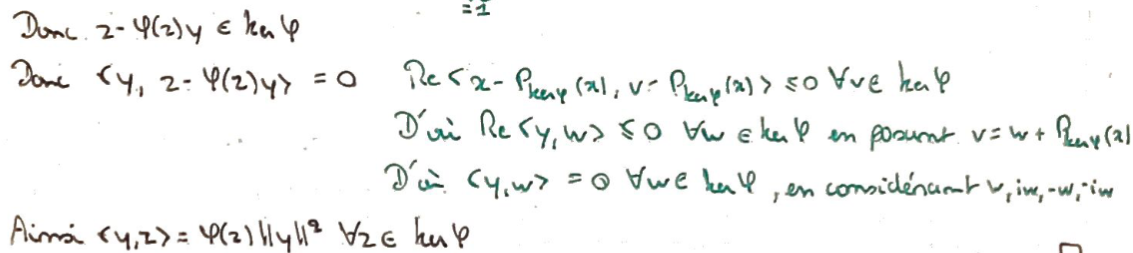 =1
Donc z-φ(z)y ∈ ker φ
Donc <y, z-φ(z)y> = 0 Re<x-P_{kerφ}(x), v-P_{kerφ}(x)> ≤0 ∀v∈ ker φ
D'où Re<y,w> ≤ 0 ∀w ∈ ker φ en posant v = w + P_{kerφ}(x)
D'où <y,w> = 0 ∀w∈ ker φ, en considérant w, iw, -w, -iw
Ainsi <y,z> = φ(z)||y||² ∀z∈ ker φ